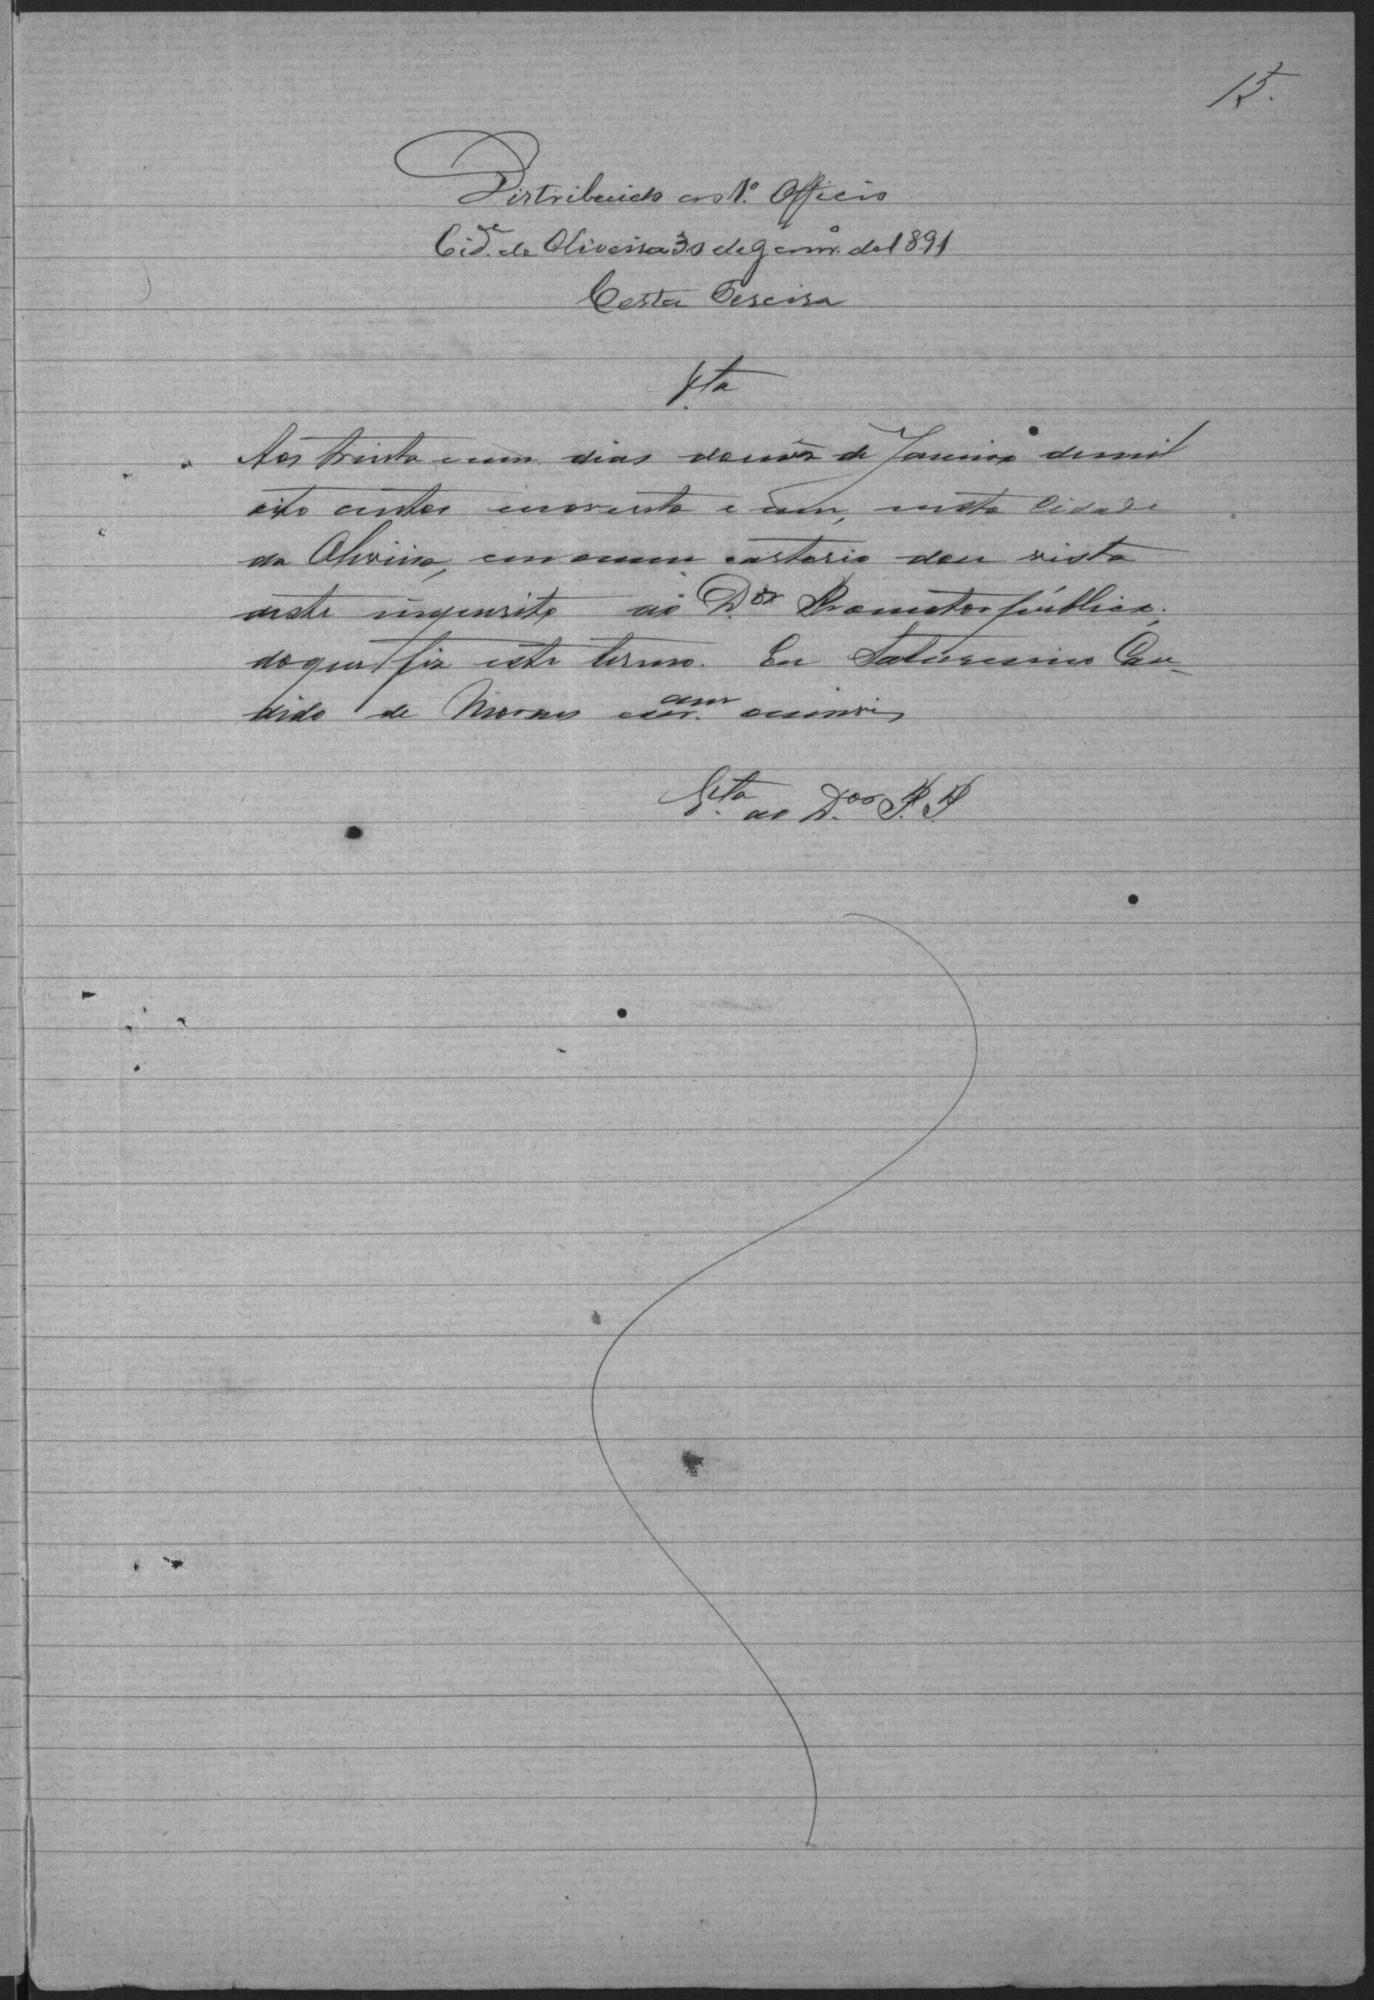 15.
Distribuido ao 1º. Officio
Cid.e de Oliveira 30 de Janrº. de 1891
Costa Pereira
V.ta
Aos trinta e um dias do mez de Janeiro de mil
oito centos e noventa e um, nesta Cidade
da Oliveira, em o meu cartorio dou vista
deste inquerito ao D.or Promotor publico;
do que fiz este termo. Eu Saturnino Can-
dido de Moraes escr.am
V.ta ao D.or P. P.